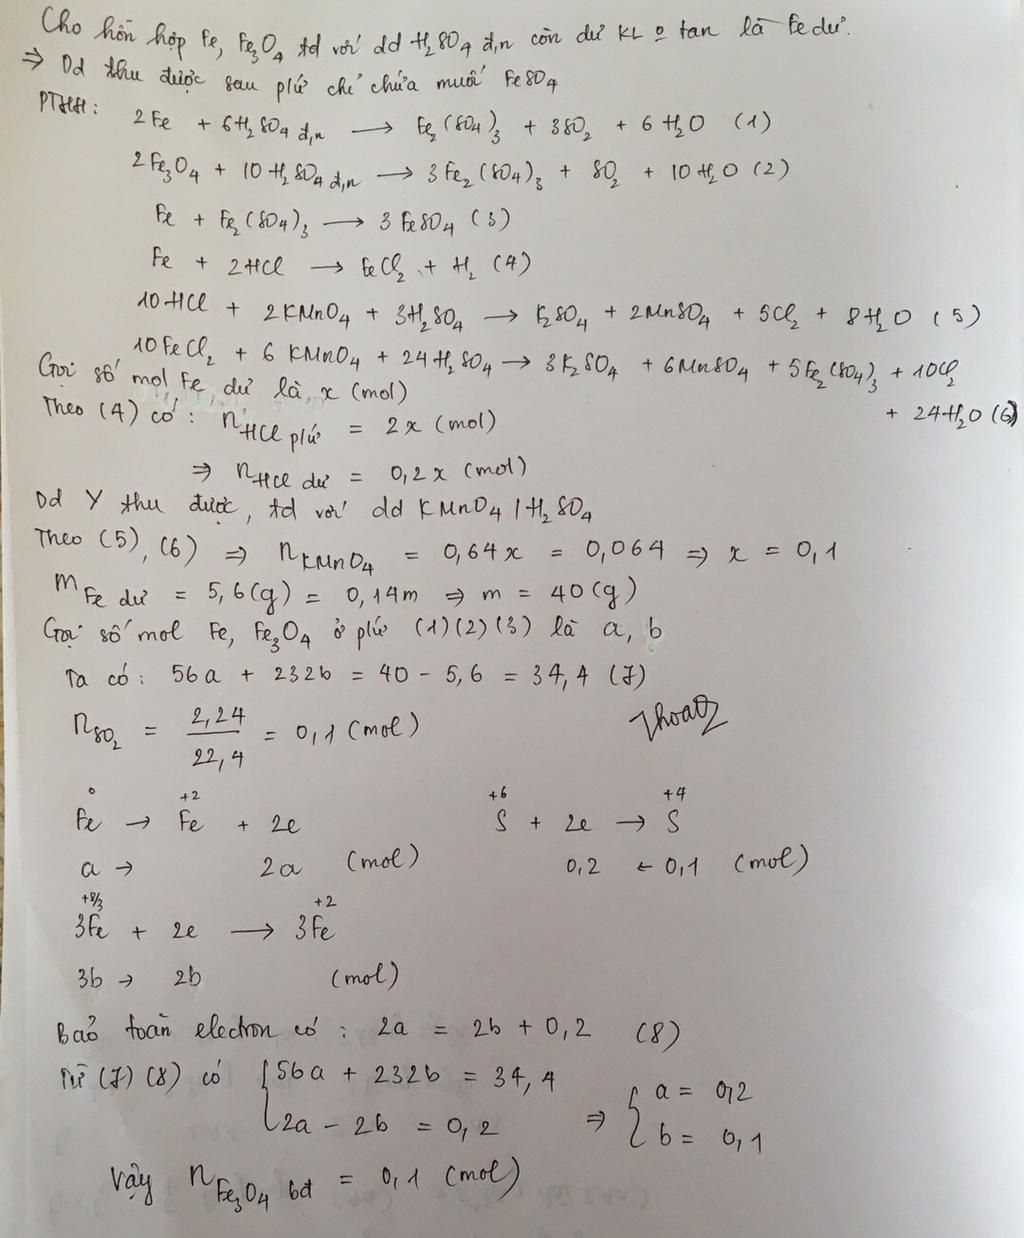 Cho hỗn hợp Fe, Fe3O4 td với dd H2SO4 đ,n còn dư KL o tan là Fe dư.
⇒ Dd thu được sau pứ chỉ chứa muối FeSO4
PTHH: 2Fe + 6H2SO4 đ,n → Fe2(SO4)3 + 3SO2 + 6H2O (1)
2Fe3O4 + 10H2SO4 đ,n → 3Fe2(SO4)3 + SO2 + 10H2O (2)
Fe + Fe2(SO4)3 → 3FeSO4 (3)
Fe + 2HCl → FeCl2 + H2 (4)
10HCl + 2KMnO4 + 3H2SO4 → K2SO4 + 2MnSO4 + 5Cl2 + 8H2O (5)
10FeCl2 + 6KMnO4 + 24H2SO4 → 3K2SO4 + 6MnSO4 + 5Fe2(SO4)3 + 10Cl2
+ 24H2O (6)
Gọi số mol Fe dư là x (mol)
Theo (4) có: nHCl pứ = 2x (mol)
⇒ nHCl dư = 0,2x (mol)
Dd Y thu được, td với dd KMnO4/H2SO4
Theo (5), (6) ⇒ nKMnO4 = 0,64x = 0,064 ⇒ x = 0,1
mFe dư = 5,6(g) = 0,14m ⇒ m = 40(g)
Gọi số mol Fe, Fe3O4 ở pứ (1)(2)(3) là a, b
Ta có: 56a + 232b = 40 - 5,6 = 34,4 (7)
nSO2 = 2,24/22,4 = 0,1 (mol)
Thoa
0 +2 +6 +4
Fe → Fe + 2e S + 2e → S
a → 2a (mol) 0,2 ← 0,1 (mol)
+8/3 +2
3Fe + 2e → 3Fe
3b → 2b (mol)
Bảo toàn electron có: 2a = 2b + 0,2 (8)
Từ (7)(8) có { 56a + 232b = 34,4 ⇒ { a = 0,2
2a - 2b = 0,2 b = 0,1
Vậy nFe3O4 bđ = 0,1 (mol)